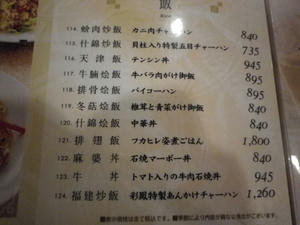 飯
Rice
114. 蟹肉炒飯 カニ肉チャーハン 840
115. 什錦炒飯 貝柱入り特製五目チャーハン 735
116. 天津飯 テンシン丼 945
117. 牛腩烩飯 牛バラ肉がけ御飯 895
118. 排骨烩飯 パイコーハン 895
119. 冬菇烩飯 椎茸と青菜がけ御飯 840
120. 什錦烩飯 中華丼 840
121. 排翅飯 フカヒレ姿煮ごはん 1,800
122. 麻婆丼 石焼マーボー丼 840
123. 牛丼 トマト入りの牛肉石焼丼 945
124. 福建炒飯 彩鳳特製あんかけチャーハン 1,260
■表示価格は全て税込です。 ■季節により内容が異なる場合がございます。